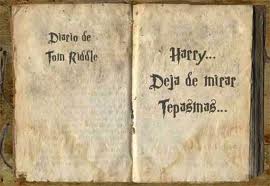 Diario de
Tom Riddle
Harry...
Deja de mirar
Tepasmas...